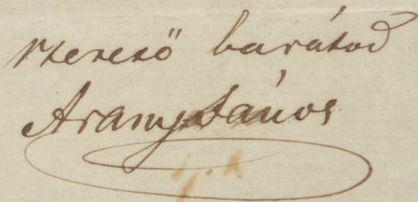 szerető barátod
Arany János